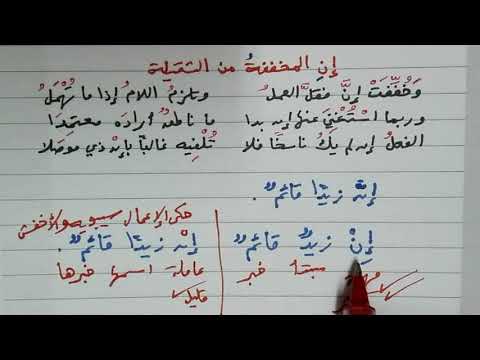 إنِ المخففةُ من الثقيلة
وَخُفِّفَتْ إنَّ فقلَّ العملُ وتلزمُ اللامُ إذا ما تُهْمَلُ
وربما اسْتُغْنيَ عنها إن بدا ما ناطقٌ أرادَه معتمِدَا
الفعلُ إن لم يكُ ناسخًا فلا تُلْفِيه غالبًا بإنْ ذي موصَلَا
إنَّ زيدًا قائمٌ.
حكى الإعمال سيبويه والأخفش
إنْ زيدٌ قائمٌ
إنْ زيدًا قائمٌ.
مبتدأ خبر
عاملة اسمها خبرها
قليل